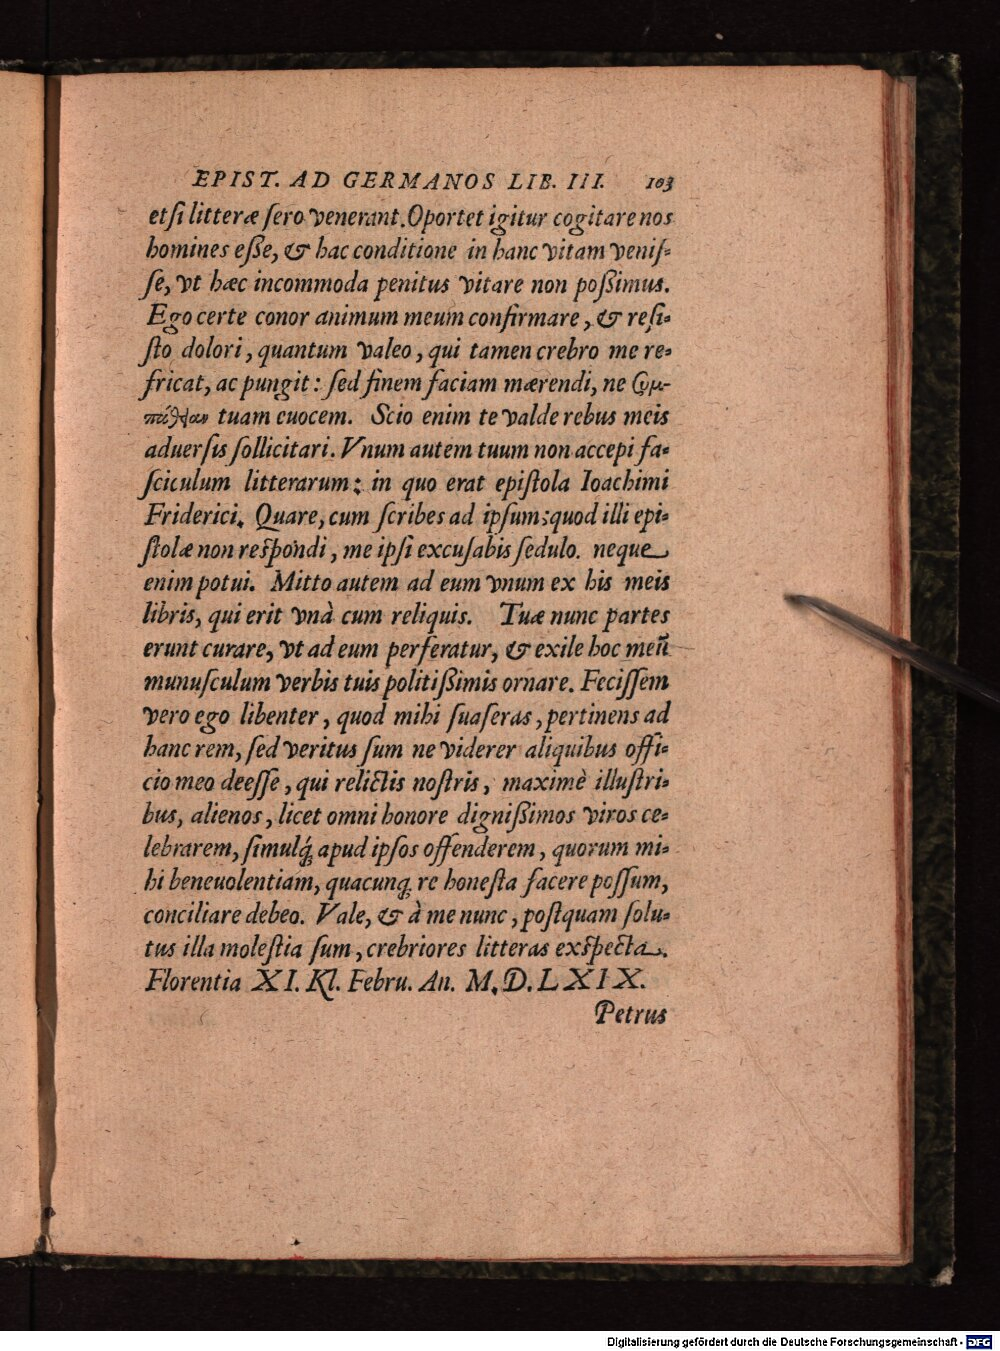 EPIST. AD GERMANOS LIB. III. 103
etſi litteræ ſero venerant. Oportet igitur cogitare nos
homines eße, & hac conditione in hanc vitam veniſ-
ſe, vt hæc incommoda penitus vitare non poßimus.
Ego certe conor animum meum confirmare, & reſi-
ſto dolori, quantum valeo, qui tamen crebro me re-
fricat, ac pungit: ſed finem faciam mærendi, ne συμ-
πάθειαν tuam euocem. Scio enim te valde rebus meis
aduerſis ſollicitari. Vnum autem tuum non accepi fa-
ſciculum litterarum: in quo erat epiſtola Ioachimi
Friderici. Quare, cum ſcribes ad ipſum: quod illi epi-
ſtolæ non reſpondi, me ipſi excuſabis ſedulo. neque
enim potui. Mitto autem ad eum vnum ex his meis
libris, qui erit vnà cum reliquis. Tuæ nunc partes
erunt curare, vt ad eum perferatur, & exile hoc meũ
munuſculum verbis tuis politißimis ornare. Feciſſem
vero ego libenter, quod mihi ſuaſeras, pertinens ad
hanc rem, ſed veritus ſum ne viderer aliquibus offi-
cio meo deeſſe, qui relictis noſtris, maximè illuſtri-
bus, alienos, licet omni honore dignißimos viros ce-
lebrarem, ſimulq́; apud ipſos offenderem, quorum mi-
hi beneuolentiam, quacunq; re honeſta facere poſſum,
conciliare debeo. Vale, & à me nunc, poſtquam ſolu-
tus illa moleſtia ſum, crebriores litteras exſpecta.
Florentia XI. Kl. Febru. An. M. D. LXIX.
Petrus
Digitalisierung gefördert durch die Deutsche Forschungsgemeinschaft - DFG